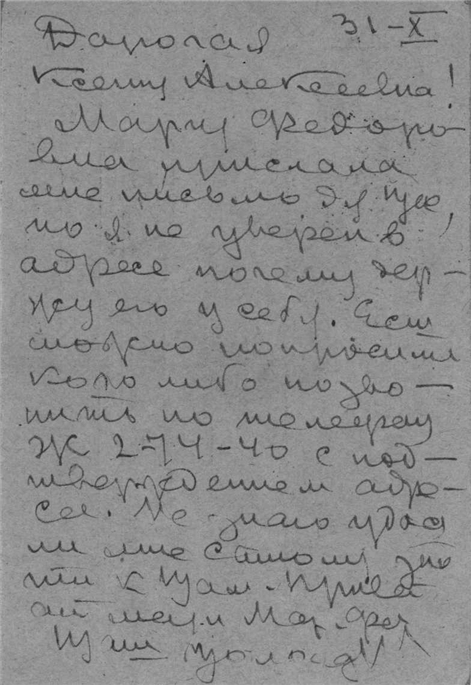 31-X
Дорогая
Ксения Алексеевна!
Мария Федоро-
вна прислала
мне письмо для
но я не уверен в
адресе почему дер-
жу его у себя. Если
можно попросите
кого либо позво-
нить по телефону
Ж 2-74-40 с под-
тверждением адре-
са. Не знаю удас
ли мне самому
ти к Вам. Привет
от меня и Мар. Фед.
Ваш